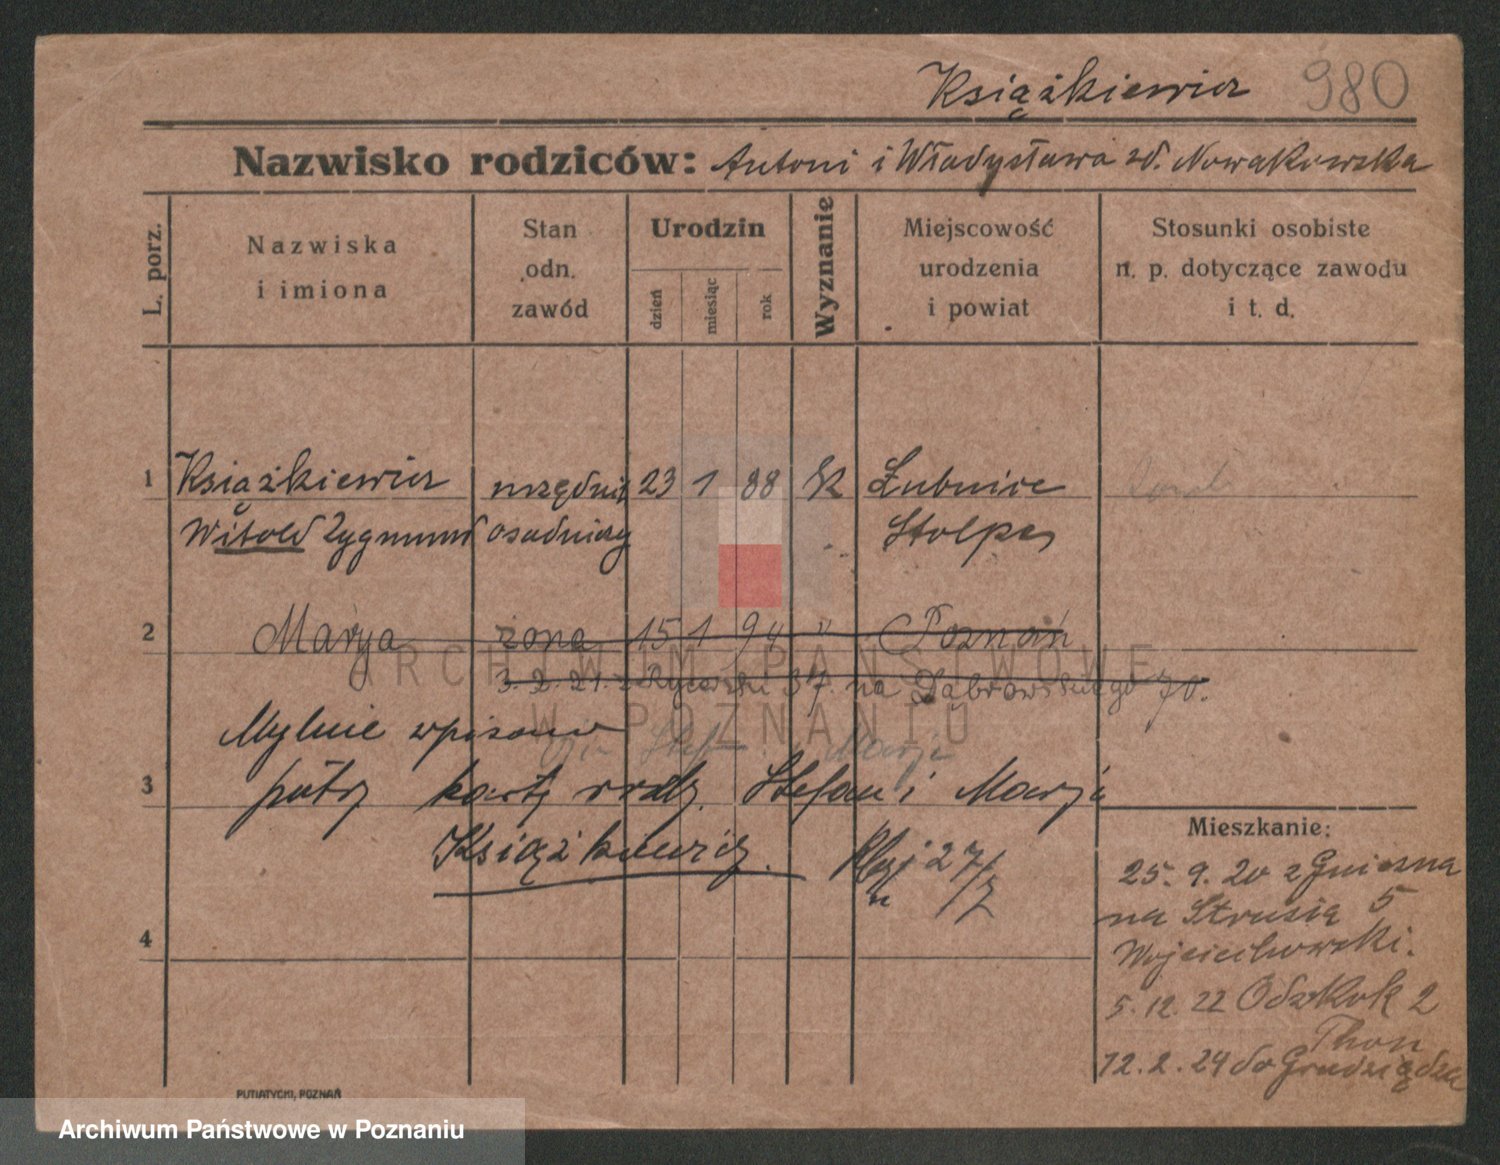 Książkiewicz 980
Nazwisko rodziców: Antoni i Władysława zd. Nowakowska
L. porz.
Nazwiska
i imiona
Stan
odn.
zawód
Urodzin
dzień
miesiąc
rok
Wyznanie
Miejscowość
urodzenia
i powiat
Stosunki osobiste
n. p. dotyczące zawodu
i t. d.
1 Książkiewicz urzędnik 23 1 88 k Łubnice
Witold Zygmunt osadniczy Stolpca
2 Marya żona 15 1 94 " Poznań
3. 2. 21. z 37. na Dąbrowskiego 70.
Mylnie wpisano
Stef Marja
3 patrz kartę rodz. Stefan i Marja
Książkiewicz. 27/
4
Mieszkanie:
25. 9. 20 z Gniezna
na Strusia 5
Wojciechowski.
5. 12. 22 2
Thon
12. 2. 24 do Grudziądza
PUTIATYCKI, POZNAŃ
ARCHIWUM PAŃSTWOWE
W POZNANIU
Archiwum Państwowe w Poznaniu